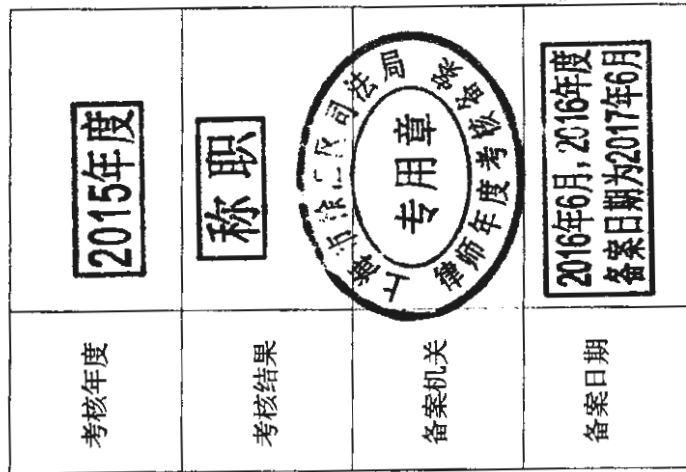 考核年度
2015年度
考核结果
称职
备案机关
上海市徐汇区司法局
律师年度考核备案
专用章
备案日期
2016年6月，2016年度
备案日期为2017年6月